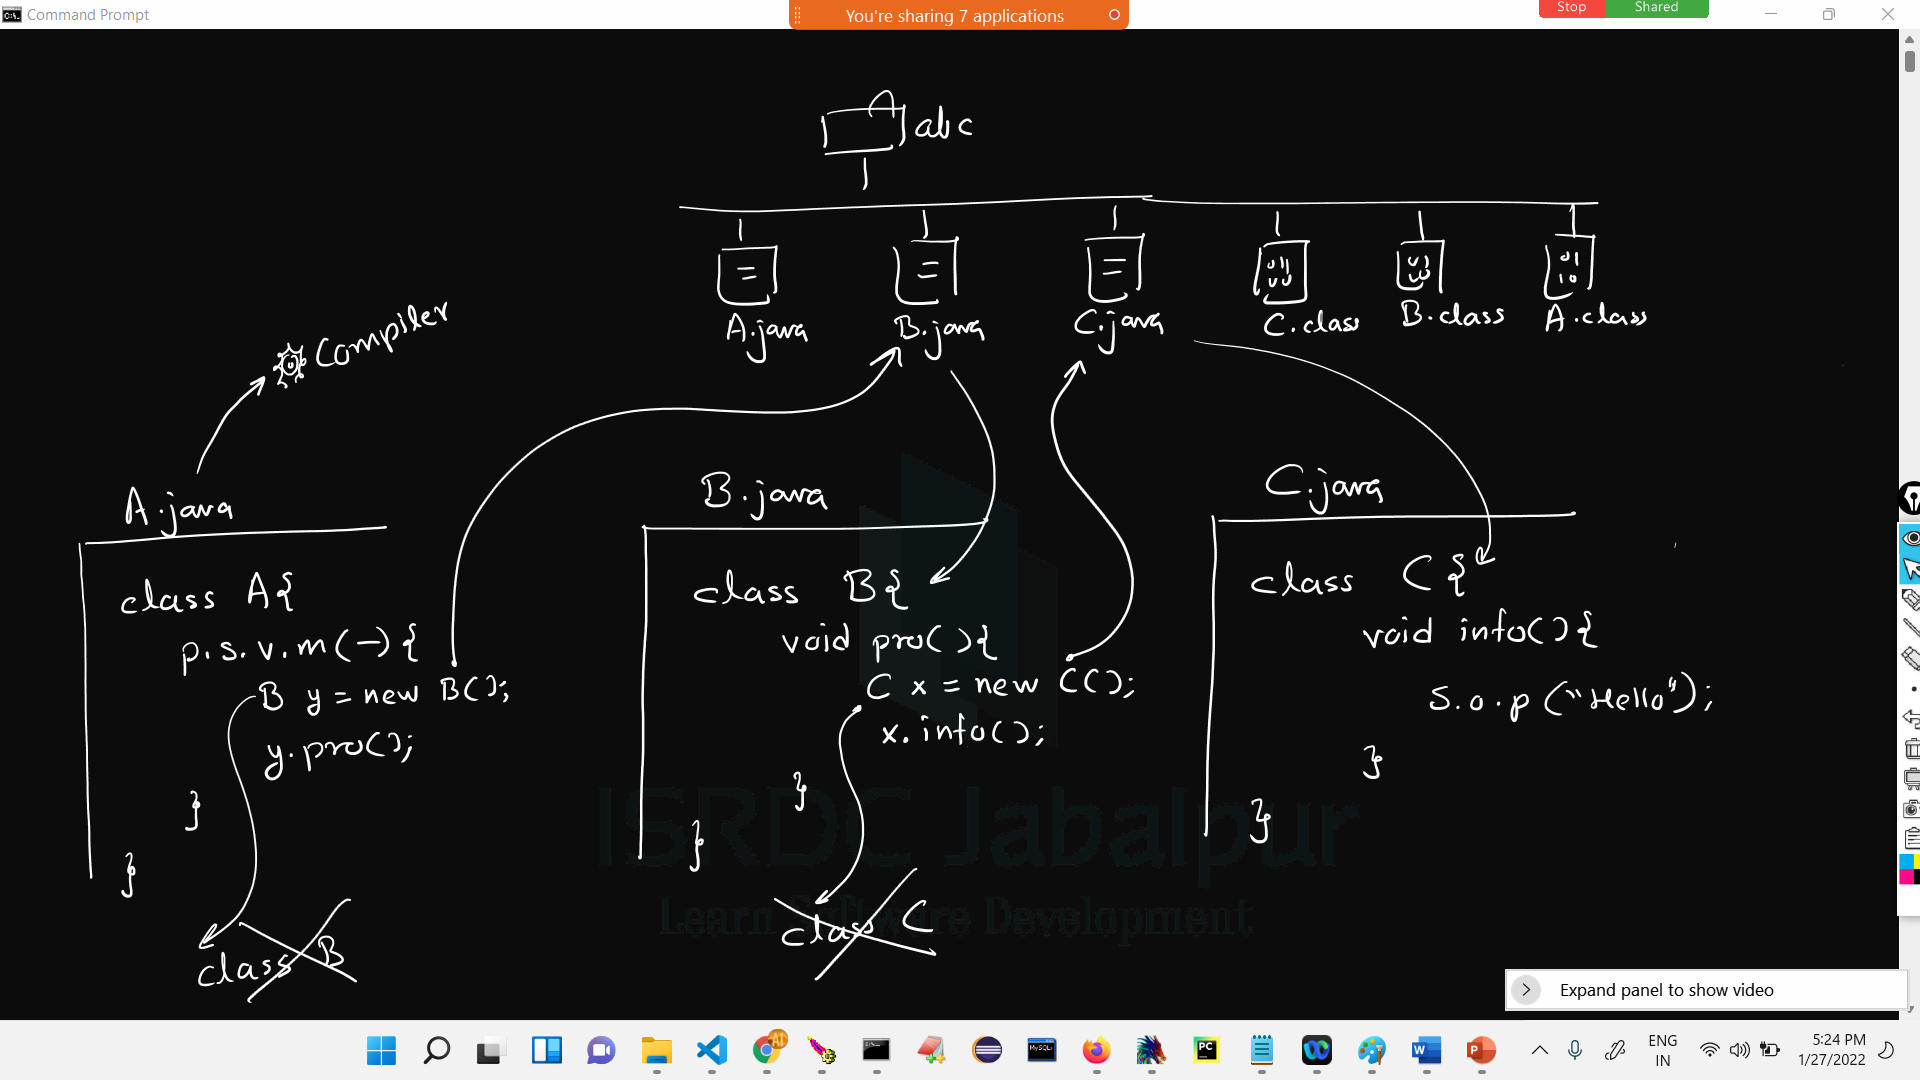 Command Prompt
You're sharing 7 applications
Stop
Shared
abc
A.java
B.java
C.java
C.class
B.class
A.class
Compiler
A.java
class A{
p.s.v.m(-){
B y = new B();
y.pro();
}
}
class B
B.java
class B{
void pro(){
C x = new C();
x.info();
}
}
class C
C.java
class C{
void info(){
S.o.p("Hello");
}
}
ISRDC Jabalpur
Learn Software Development
Expand panel to show video
ENG
IN
5:24 PM
1/27/2022